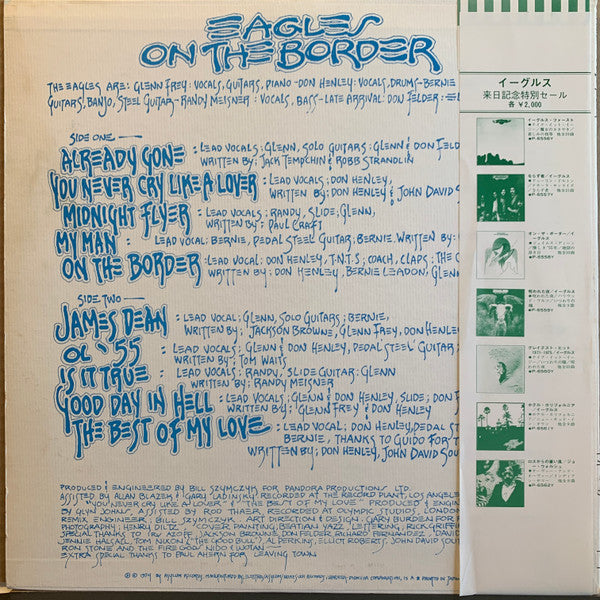 EAGLES
ON THE BORDER
THE EAGLES ARE: GLENN FREY: VOCALS, GUITARS, PIANO - DON HENLEY: VOCALS, DRUMS - BERNIE
GUITARS, BANJO, STEEL GUITAR - RANDY MEISNER: VOCALS, BASS - LATE ARRIVAL: DON FELDER:
SIDE ONE
ALREADY GONE : LEAD VOCALS; GLENN, SOLO GUITARS: GLENN & DON FELD
WRITTEN BY: JACK TEMPCHIN & ROBB STRANDLIN
YOU NEVER CRY LIKE A LOVER : LEAD VOCALS; DON HENLEY,
WRITTEN BY; DON HENLEY & JOHN DAVID SO
MIDNIGHT FLYER : LEAD VOCALS: RANDY, SLIDE; GLENN,
WRITTEN BY: PAUL CRAFT
MY MAN : LEAD VOCAL: BERNIE, PEDAL STEEL GUITAR: BERNIE. WRITTEN BY:
ON THE BORDER : LEAD VOCALS: DON HENLEY, T.N.T.S; COACH, CLAPS: THE C
WRITTEN BY: DON HENLEY, BERNIE LEADON, GLENN
SIDE TWO
JAMES DEAN : LEAD VOCAL; GLENN, SOLO GUITARS; BERNIE,
WRITTEN BY; JACKSON BROWNE, GLENN FREY, DON HENLEY
OL' '55 : LEAD VOCAL; GLENN & DON HENLEY, PEDAL STEEL GUITAR
WRITTEN BY: TOM WAITS
IS IT TRUE : LEAD VOCALS: RANDY, SLIDE GUITAR: GLENN
WRITTEN BY: RANDY MEISNER
GOOD DAY IN HELL : LEAD VOCALS; GLENN & DON HENLEY, SLIDE; DON F
WRITTEN BY: GLENN FREY & DON HENLEY
THE BEST OF MY LOVE : LEAD VOCAL: DON HENLEY, PEDAL S
BERNIE, THANKS TO GUIDO FOR T
WRITTEN BY; DON HENLEY, JOHN DAVID SOU
PRODUCED & ENGINEERED BY BILL SZYMCZYK FOR PANDORA PRODUCTIONS LTD.
ASSISTED BY ALLAN BLAZEK & GARY LADINSKY, RECORDED AT THE RECORD PLANT, LOS ANGELES
"YOU NEVER CRY LIKE A LOVER" & "THE BEST OF MY LOVE" PRODUCED & ENGIN
BY GLYN JOHNS, ASSISTED BY ROD THAER, RECORDED AT OLYMPIC STUDIOS, LONDON
REMIX ENGINEER: BILL SZYMCZYK ART DIRECTION & DESIGN: GARY BURDEN FOR
PHOTOGRAPHY: HENRY DILTZ COVER PAINTING; BEATIAN YAZZ LETTERING; RICK GRIFFIN
SPECIAL THANKS TO IRV AZOFF, JACKSON BROWNE, DON FELDER, RICHARD FERNANDEZ, DAVID
TOM NIXON ("THE GOOD BULL") AL PERKINS, ELLIOT ROBERTS, JOHN DAVID SOUT
RON STONE AND THE FIRE GOD/NIDO & WOTAN
EXTRA SPECIAL THANKS TO PAUL AHERN FOR LEAVING TOWN
イーグルス
来日記念特別セール
各 ¥2,000
イーグルス・ファースト
●P-6556Y
ならず者/イーグルス
●P-6557Y
オン・ザ・ボーダー/イーグルス
●P-6558Y
呪われた夜/イーグルス
グレイテスト・ヒット
1971-1975/イーグルス
ホテル・カリフォルニア
/イーグルス
●P-6561Y
●P-6562Y